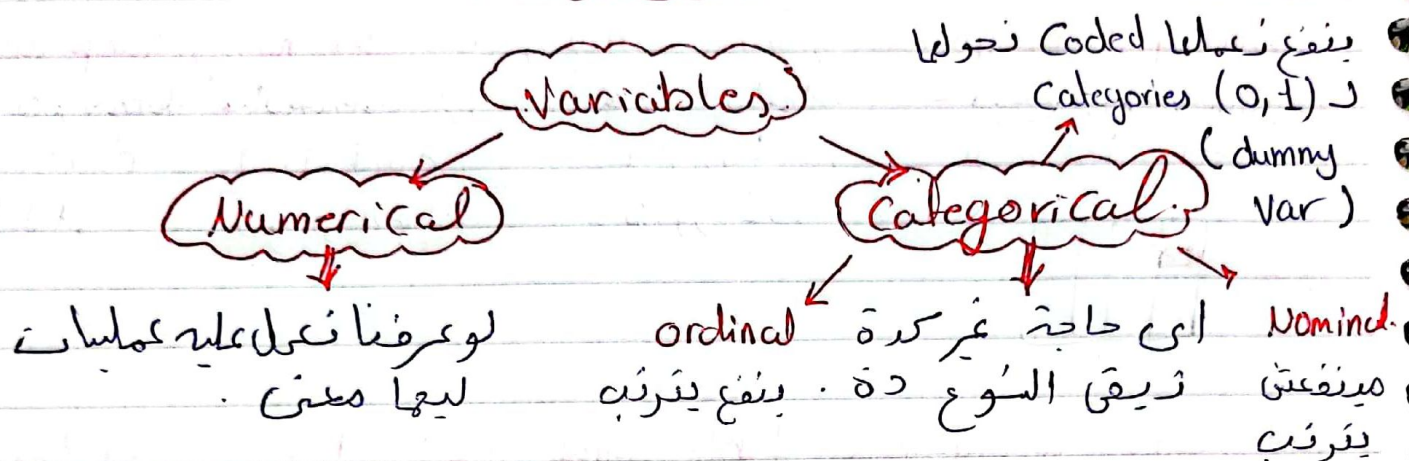 ينفع نعملها Coded نحولها
لـ Categories (0,1)
(dummy
Var)
Variables
Numerical
Categorical
لو عرفنا نعمل عليه عمليات
ليها معنى .
ordinal
ينفع يترتب
اى حاجة غير كدة
تبقى النوع دة .
Nominal.
مينفعش
يترتب